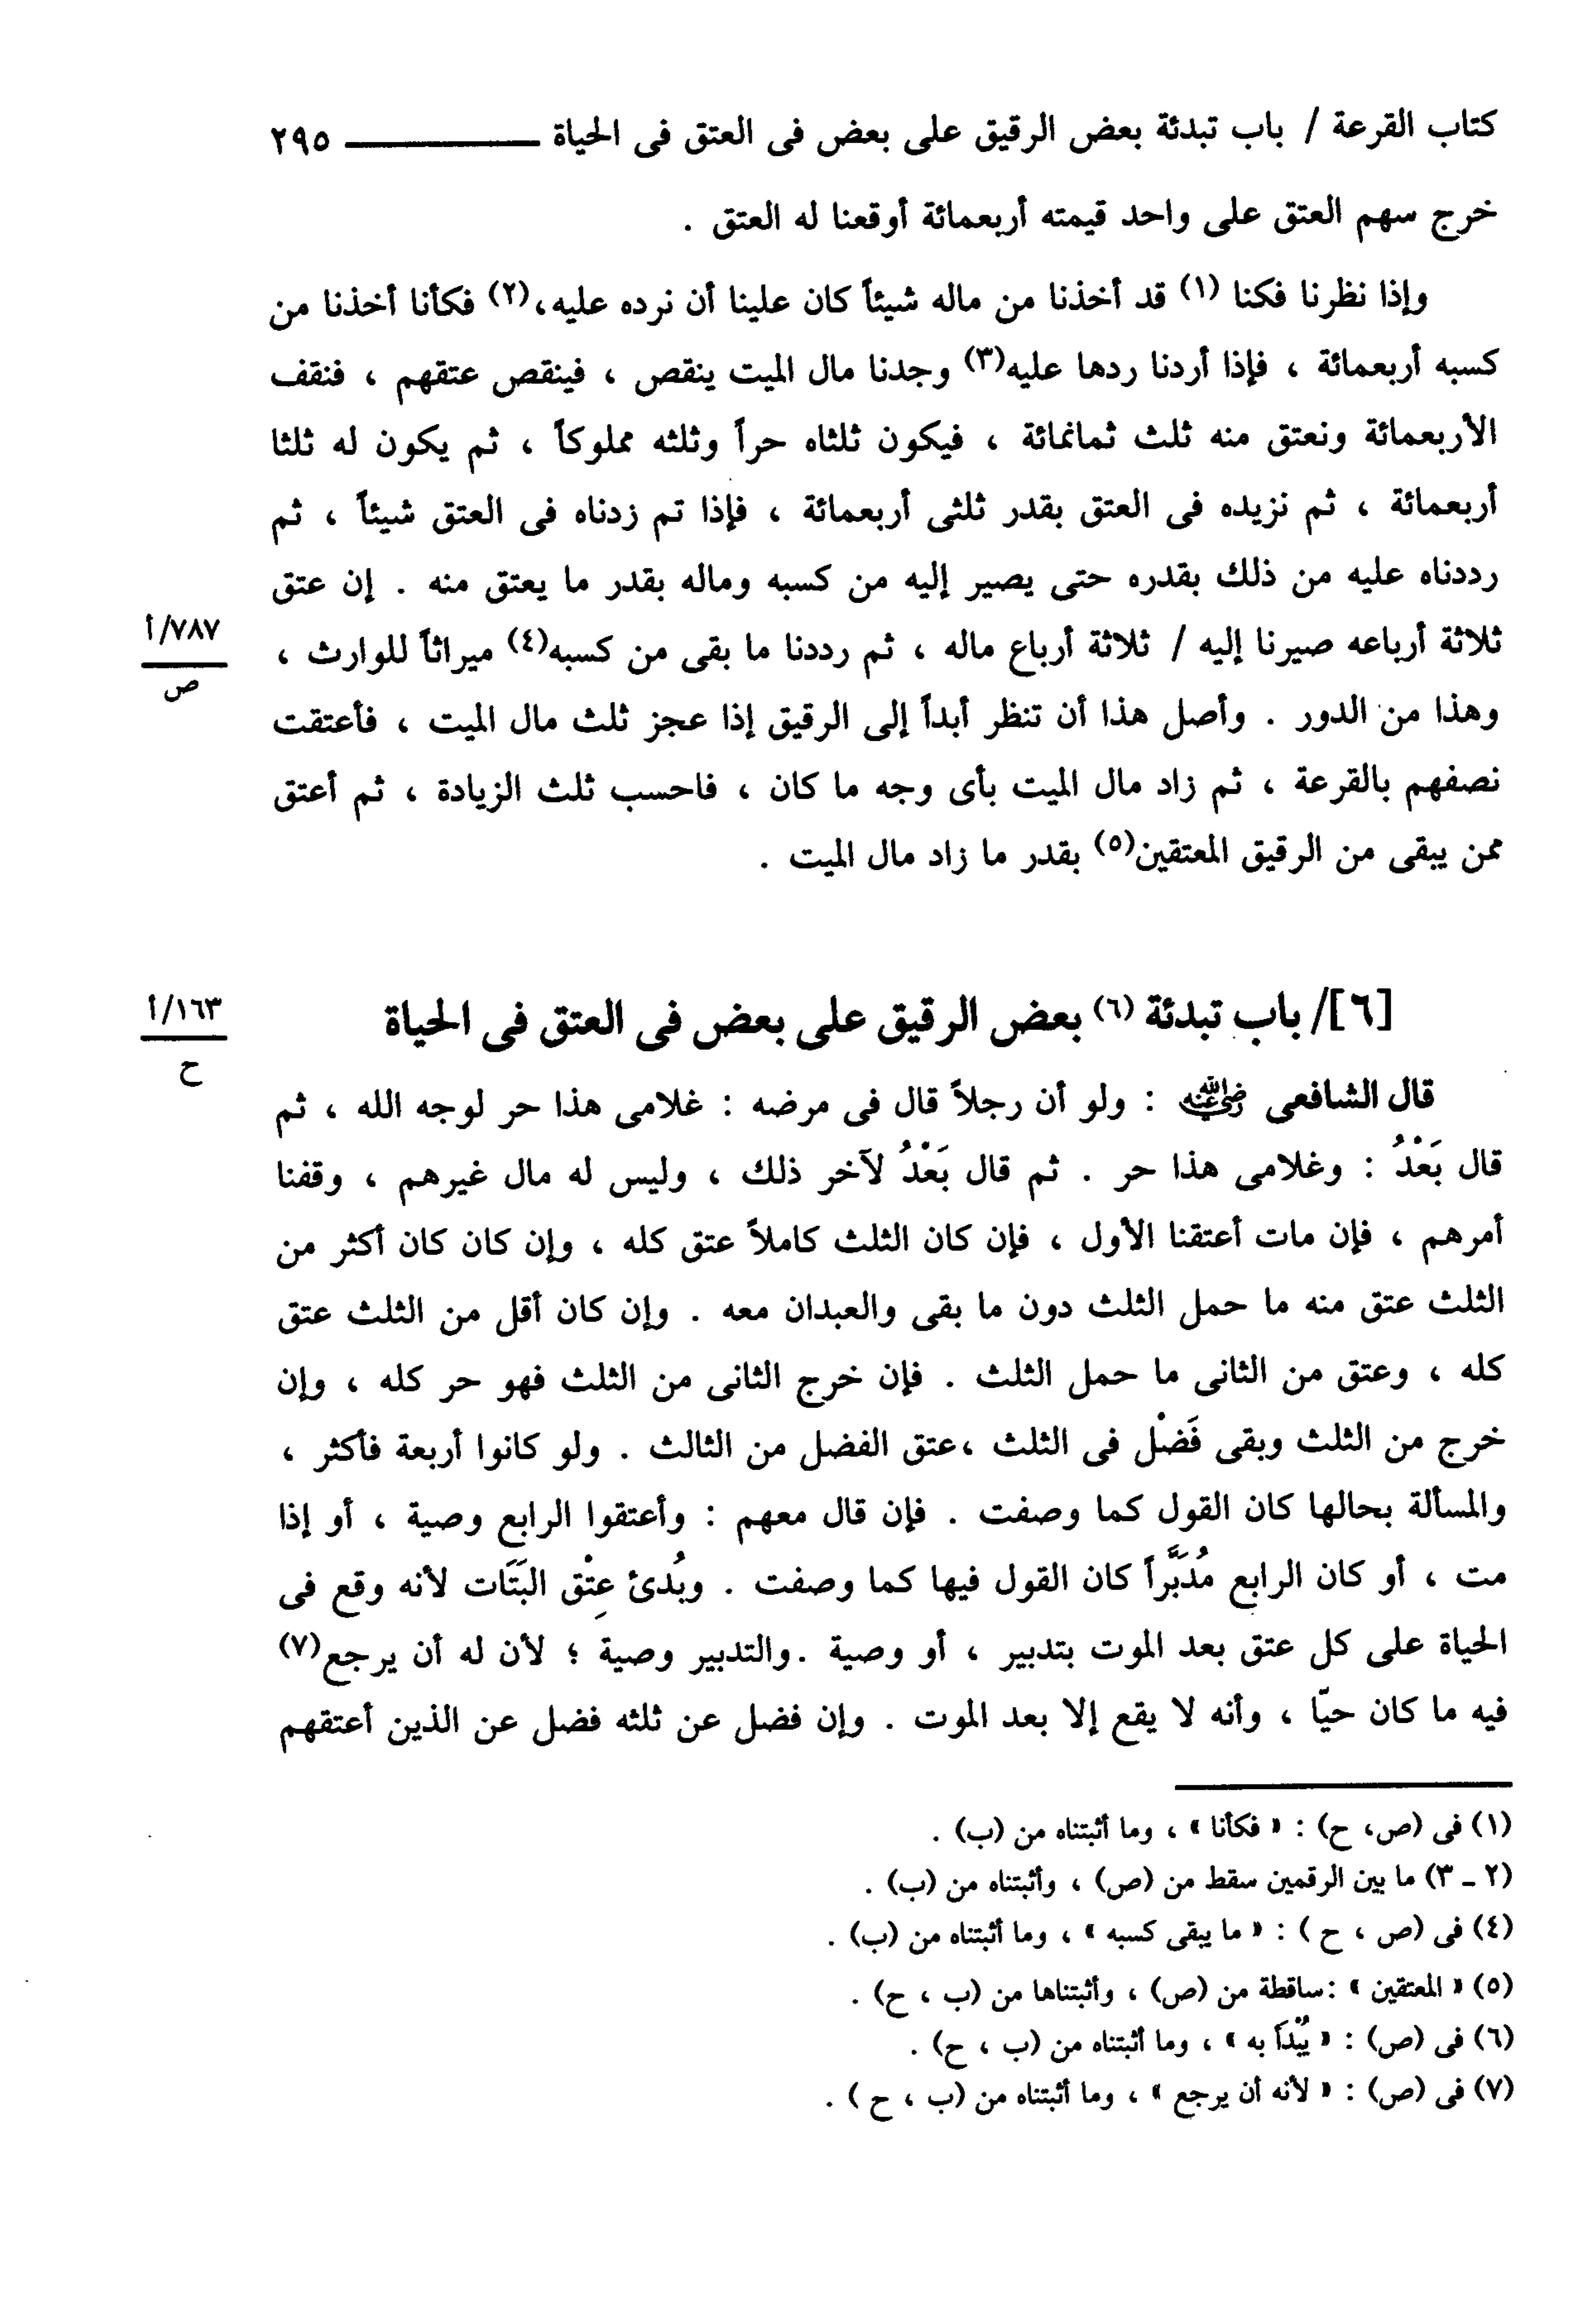 كتاب القرعة / باب تبدئة بعض الرقيق على بعض فى العتق فى الحياة ــــــــــــ ٢٩٥
خرج سهم العتق على واحد قيمته أربعمائة أوقعنا له العتق .
وإذا نظرنا فكنا (١) قد أخذنا من ماله شيئاً كان علينا أن نرده عليه،(٢) فكأنا أخذنا من
كسبه أربعمائة ، فإذا أردنا ردها عليه(٣) وجدنا مال الميت ينقص ، فينقص عتقهم ، فنقف
الأربعمائة ونعتق منه ثلث ثمانمائة ، فيكون ثلثاه حراً وثلثه مملوكاً ، ثم يكون له ثلثا
أربعمائة ، ثم نزيده فى العتق بقدر ثلثى أربعمائة ، فإذا تم زدناه فى العتق شيئاً ، ثم
رددناه عليه من ذلك بقدره حتى يصير إليه من كسبه وماله بقدر ما يعتق منه . إن عتق
ثلاثة أرباعه صيرنا إليه / ثلاثة أرباع ماله ، ثم رددنا ما بقى من كسبه(٤) ميراثاً للوارث ،
٧٨٧/أ
ص
وهذا من الدور . وأصل هذا أن تنظر أبداً إلى الرقيق إذا عجز ثلث مال الميت ، فأعتقت
نصفهم بالقرعة ، ثم زاد مال الميت بأى وجه ما كان ، فاحسب ثلث الزيادة ، ثم أعتق
ممن يبقى من الرقيق المعتقين(٥) بقدر ما زاد مال الميت .
[٦]/ باب تبدئة (٦) بعض الرقيق على بعض فى العتق فى الحياة
١٦٣/أ
ح
قال الشافعى رضي الله عنه : ولو أن رجلاً قال فى مرضه : غلامى هذا حر لوجه الله ، ثم
قال بَعْدُ : وغلامى هذا حر . ثم قال بَعْدُ لآخر ذلك ، وليس له مال غيرهم ، وقفنا
أمرهم ، فإن مات أعتقنا الأول ، فإن كان الثلث كاملاً عتق كله ، وإن كان كان أكثر من
الثلث عتق منه ما حمل الثلث دون ما بقى والعبدان معه . وإن كان أقل من الثلث عتق
كله ، وعتق من الثانى ما حمل الثلث . فإن خرج الثانى من الثلث فهو حر كله ، وإن
خرج من الثلث وبقى فَضْل فى الثلث ،عتق الفضل من الثالث . ولو كانوا أربعة فأكثر ،
والمسألة بحالها كان القول كما وصفت . فإن قال معهم : وأعتقوا الرابع وصية ، أو إذا
مت ، أو كان الرابع مُدَبَّراً كان القول فيها كما وصفت . وبُدئ عِتْق البَتَات لأنه وقع فى
الحياة على كل عتق بعد الموت بتدبير ، أو وصية .والتدبير وصية ؛ لأن له أن يرجع(٧)
فيه ما كان حيّا ، وأنه لا يقع إلا بعد الموت . وإن فضل عن ثلثه فضل عن الذين أعتقهم
(١) فى (ص، ح) : « فكأنا » ، وما أثبتناه من (ب) .
(٢ ـ ٣) ما بين الرقمين سقط من (ص) ، وأثبتناه من (ب) .
(٤) فى (ص ، ح ) : « ما يبقى كسبه » ، وما أثبتناه من (ب) .
(٥) « المعتقين » :ساقطة من (ص) ، وأثبتناها من (ب ، ح) .
(٦) فى (ص) : « يُبْدَأ به » ، وما أثبتناه من (ب ، ح) .
(٧) فى (ص) : « لأنه أن يرجع » ، وما أثبتناه من (ب ، ح ) .